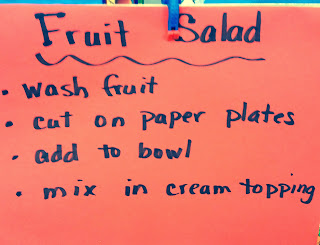 Fruit Salad
• wash fruit
• cut on paper plates
• add to bowl
• mix in cream topping